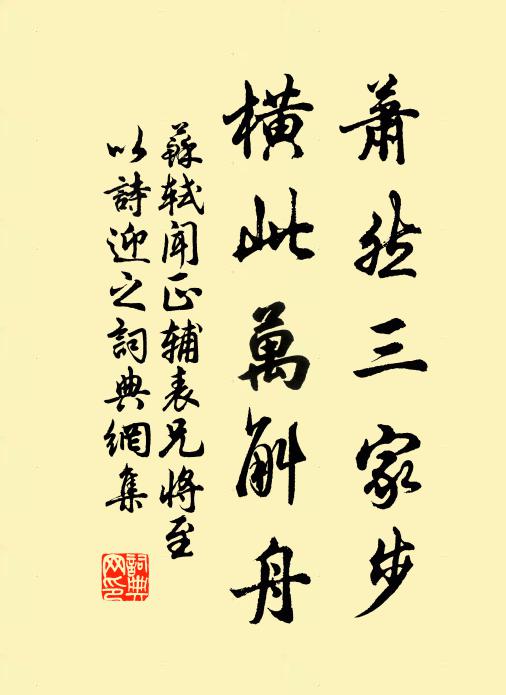 蕭然三家步
橫此萬斛舟
蘇軾聞正輔表兄將至
以詩迎之詞典網集
詞典
网印